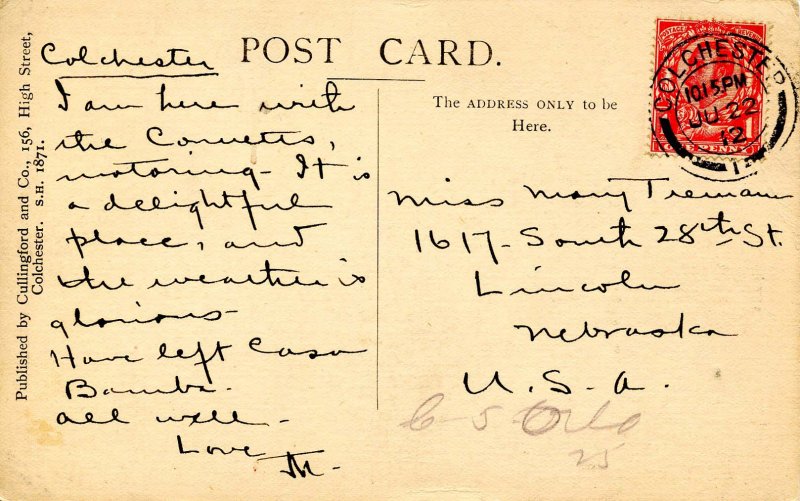 Published by Cullingford and Co., 156, High Street,
Colchester. S.H. 1871.
POST CARD.
The ADDRESS ONLY to be
Here.
Colchester
I am here with
the
motoring - It is
a delightful
place, and
the weather is
glorious -
Have left Casa
Bamba -
all well -
Love
M -
Miss Mary Tremain
1617 - South 28th St.
Lincoln
Nebraska
U. S. A.
25
COLCHESTER
10 15 PM
JU 22
12
POSTAGE
ONE PENNY
1